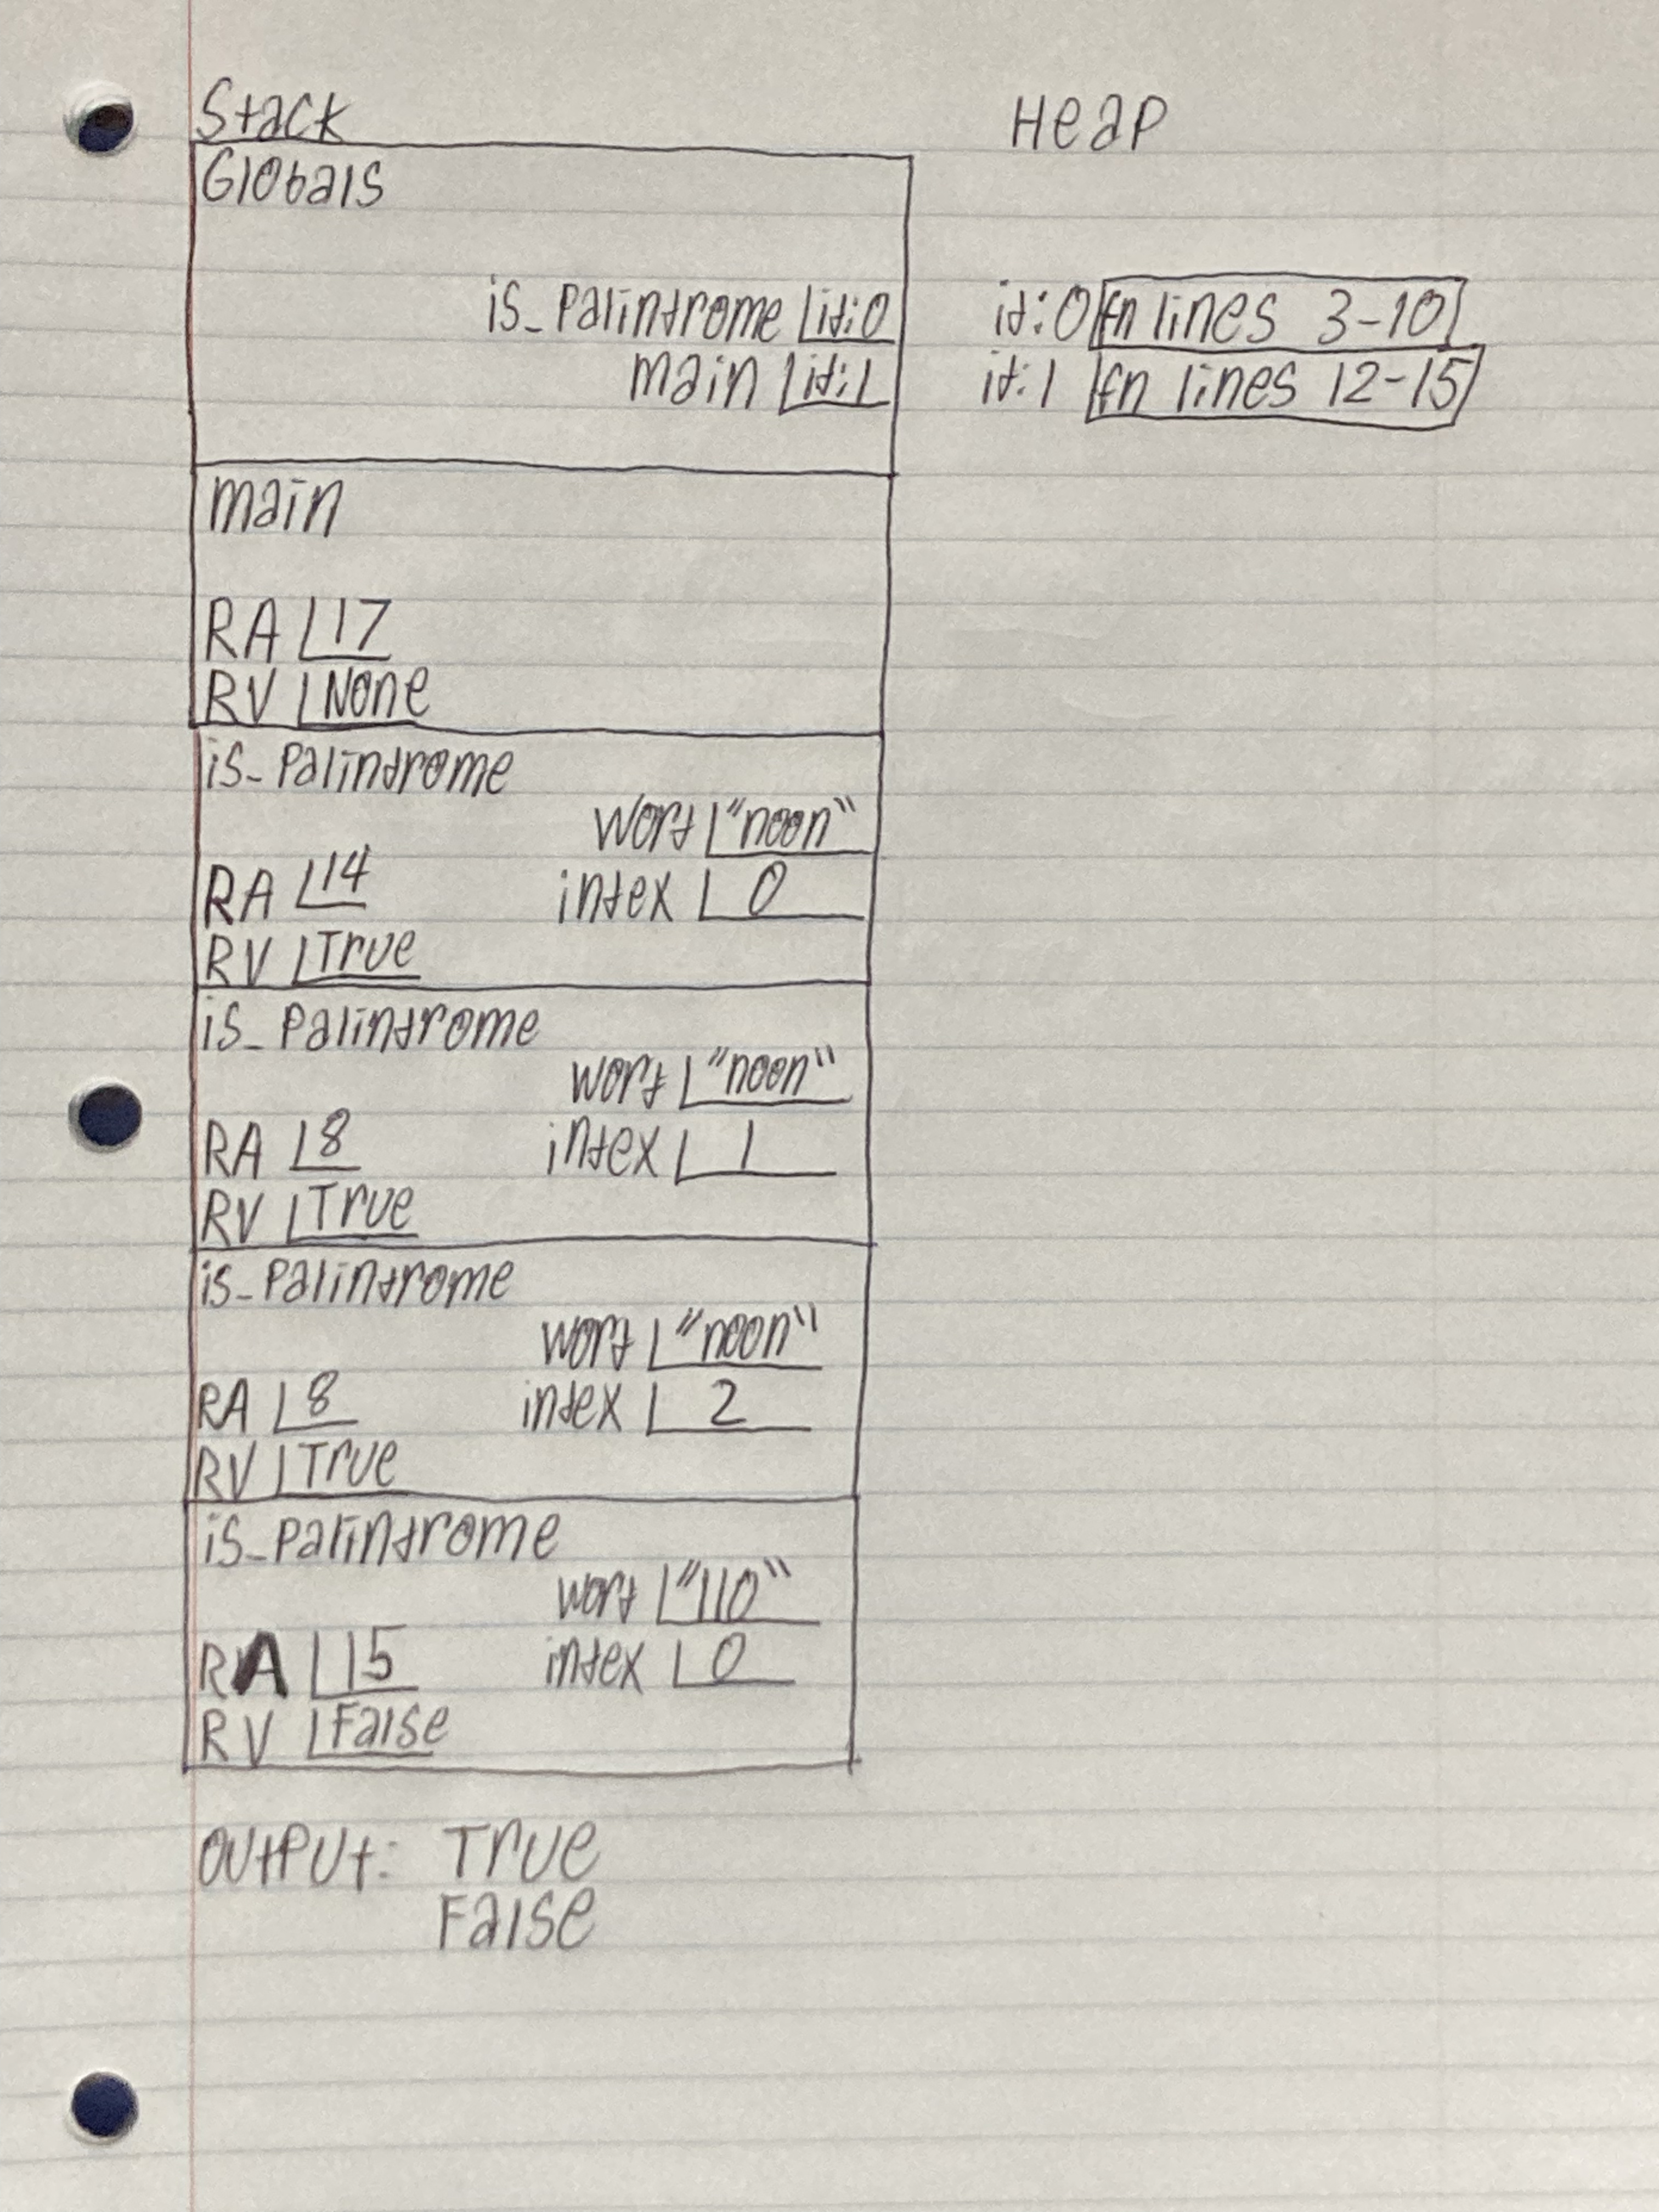 Stack Heap
Globals
is_palindrome id:0 id:0 fn lines 3-10
main id:1 id:1 fn lines 12-15
main
RA 17
RV None
is_palindrome
word "noon"
RA 14 index 0
RV True
is_palindrome
word "noon"
RA 8 index 1
RV True
is_palindrome
word "noon"
RA 8 index 2
RV True
is_palindrome
word "110"
RA 15 index 0
RV False
Output: True
False